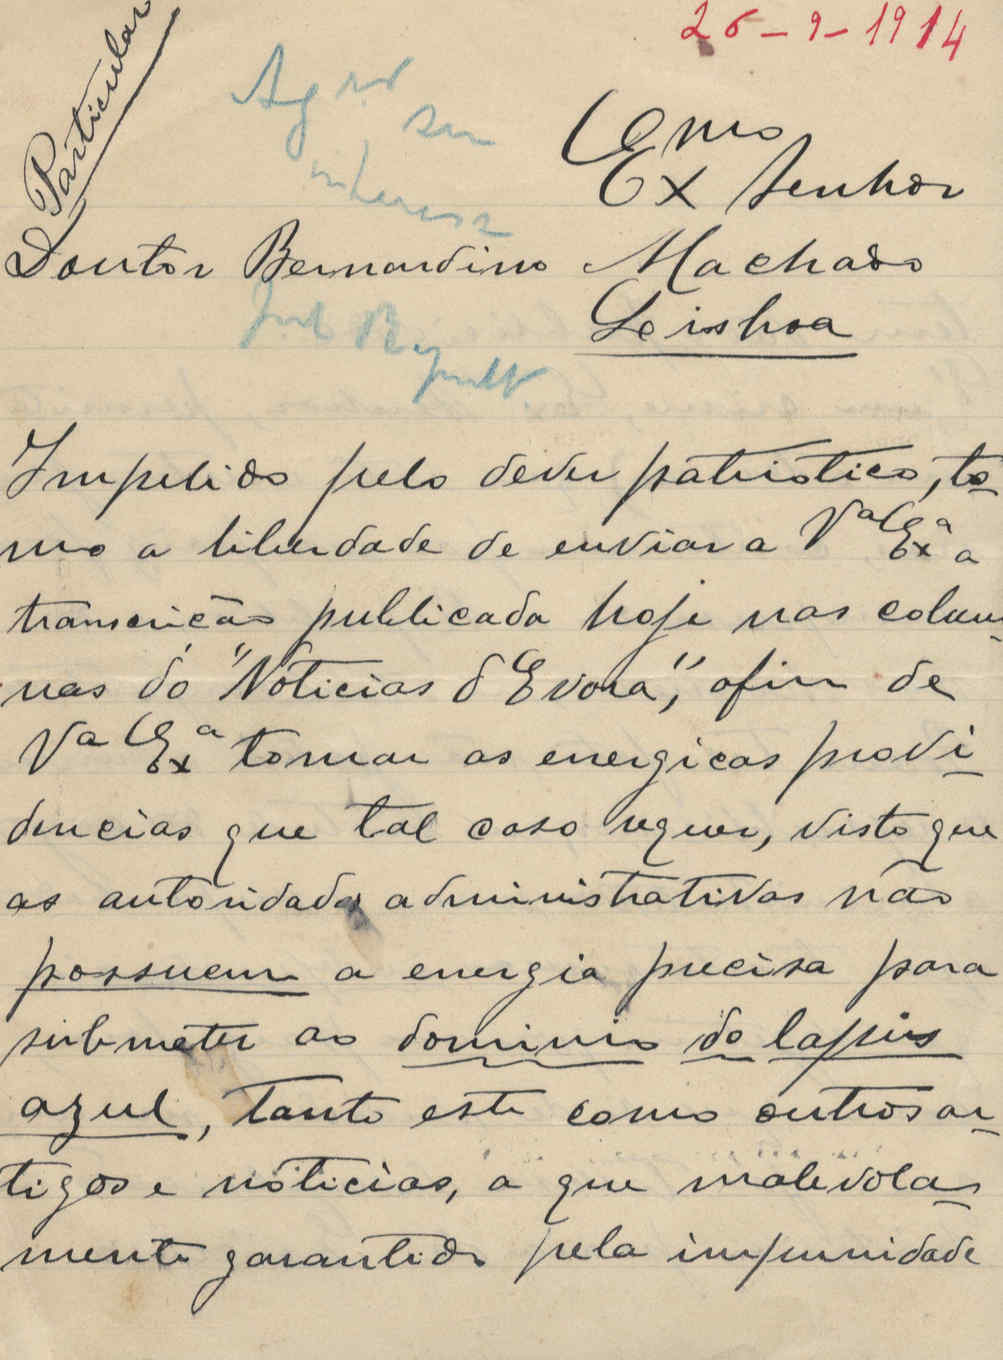 26-9-1914
Particular
Exmo
Ex Senhor
Doutor Bernardino Machado
Leisboa
Impelido pelo dever patriotico, to-
mo a liberdade de enviar a Vª Exª a
transcrição publicada hoje nas colum-
nas dó "Nóticias d'Evora", afim de
Vª Exª tomar as energicas provi-
dencias que tal caso requer, visto que
as autoridades administrativas não
possuem a energia precisa para
submeter ao dominio do lapis
azul, tanto este como outros ar-
tigos e nóticias, a que malevola-
mente garantido pela impunidade